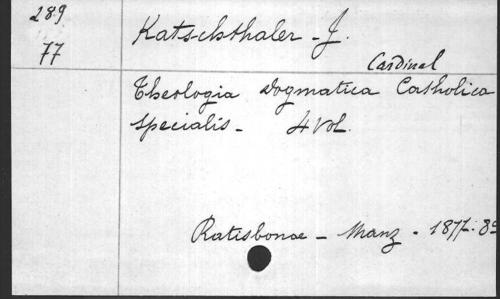 289
77
Katschthaler - J.
Cardinal
Theologia Dogmatica Catholica
Specialis - 4 Vol.
Ratisbonae - Manz - 1877-8